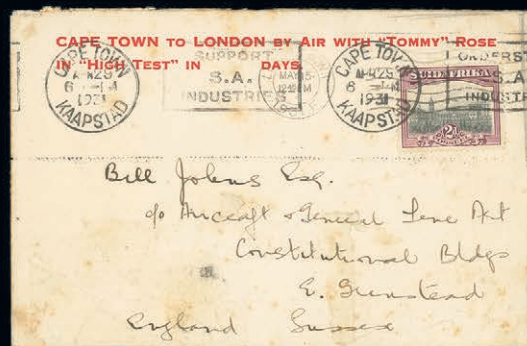 CAPE TOWN TO LONDON BY AIR WITH "TOMMY" ROSE
IN "HIGH TEST" IN DAYS.
CAPE TOWN
29
6
1931
KAAPSTAD
SUPPORT
S.A.
INDUSTRIES
MAY 15
CAPE TOWN
29
6
1931
KAAPSTAD
S.A.
SUIDAFRIKA
2D
Bill Johns Esq.
c/o Aircraft & General
Constitutional Bldgs
E. Grinstead
England Sussex